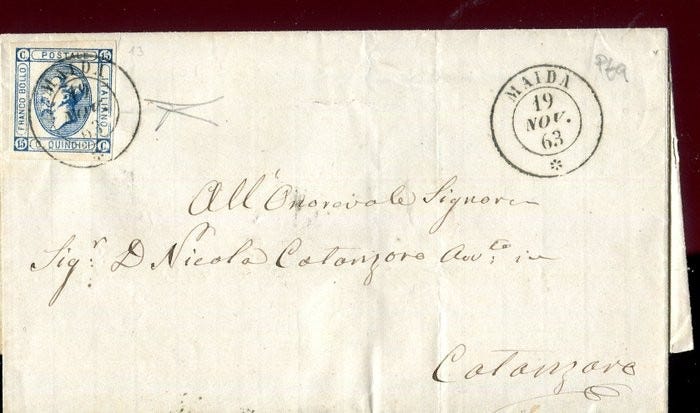 C POSTALE 15
FRANCO BOLLO
ITALIANO
15 C. QUINDICI C
MAIDA
19
NOV.
63
13
MAIDA
19
NOV.
63
P69
All'Onorevole Signore
Sigr D Nicola Catanzaro Avv.to in
Catanzaro